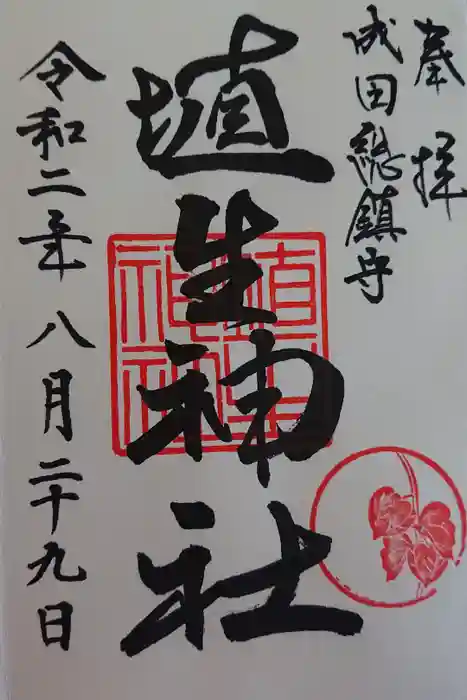 奉拝
成田總鎮守
埴生神社
令和二年八月二十九日